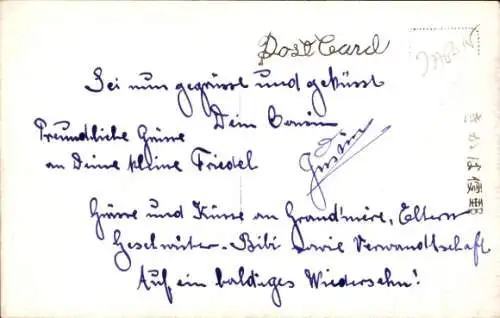 Post Card
Sei nun gegrüsst und geküsst
Dein Cousin
Freundliche Grüsse
an Deine kleine Friedel
Grüsse und Küsse an Grand'mère, Eltern
Geschwister. Bibi sowie Verwandtschaft
Auf ein baldiges Wiedersehn!